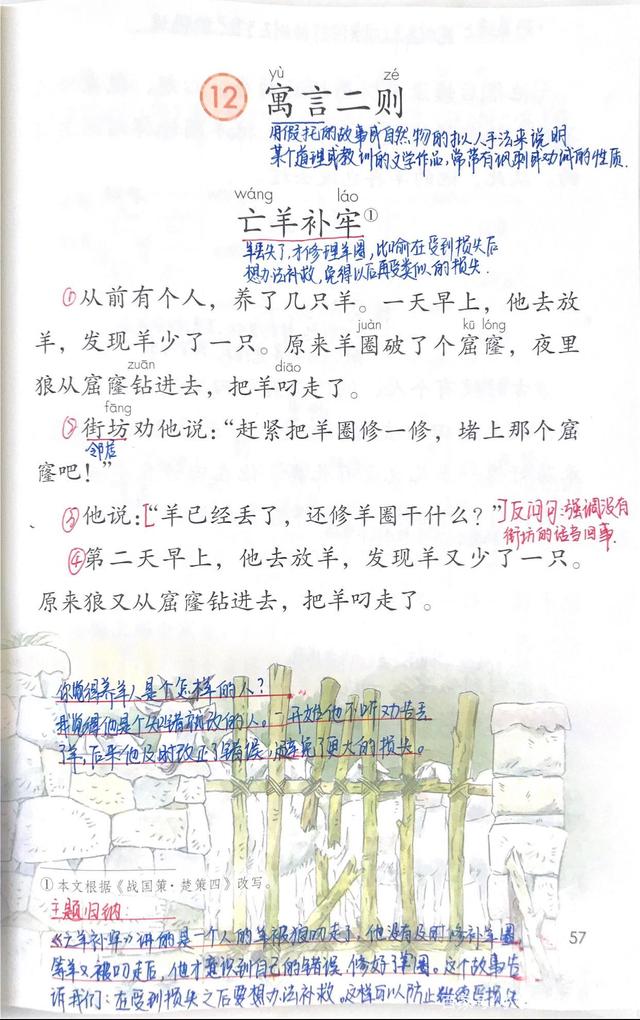 yù zé
12 寓言二则
用假托的故事或自然物的拟人手法来说明
某个道理或教训的文学作品,常带有讽刺或劝诫的性质.
wáng láo
亡羊补牢①
羊丢失了,才修理羊圈,比喻在受到损失后
想办法补救,免得以后再受类似的损失.
①从前有个人,养了几只羊。一天早上,他去放
juàn kū lóng
羊,发现羊少了一只。原来羊圈破了个窟窿,夜里
zuān diāo
狼从窟窿钻进去,把羊叼走了。
fāng
②街坊劝他说:“赶紧把羊圈修一修,堵上那个窟
邻居
窿吧!”
③他说:[“羊已经丢了,还修羊圈干什么?”]反问句:强调没有
街坊的话当回事.
④第二天早上,他去放羊,发现羊又少了一只。
原来狼又从窟窿钻进去,把羊叼走了。
你觉得养羊人是个怎样的人?
我觉得他是个知错就改的人。一开始他不听劝告丢
了羊,后来他及时改正了错误,避免了更大的损失。
①本文根据《战国策·楚策四》改写。
主题归纳:
《亡羊补牢》讲的是一个人的羊被狼叼走了,他没有及时修补羊圈,
等羊又被叼走后,他才意识到自己的错误,修好了羊圈。这个故事告
诉我们:在受到损失之后要想办法补救。这样可以防止继续受损失.
57